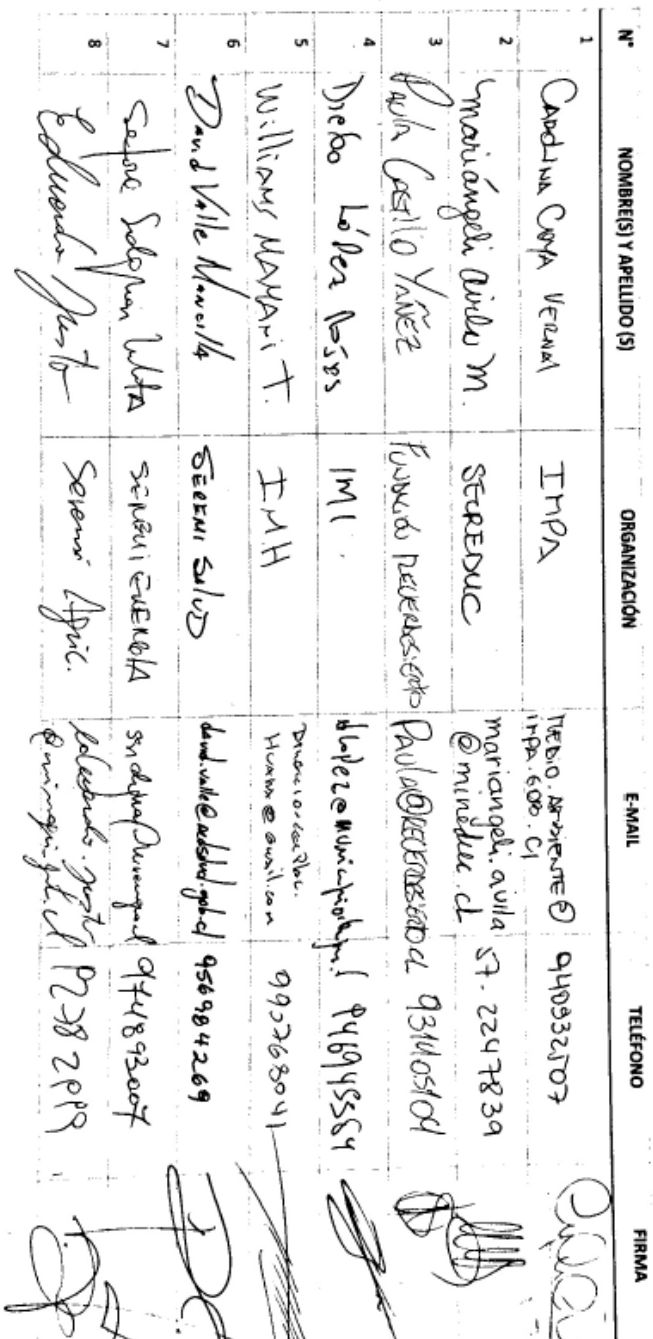 N° NOMBRE(S) Y APELLIDO (S) ORGANIZACIÓN E-MAIL TELÉFONO FIRMA
1 CAROLINA VERNAL IMPA MEDIO.AMBIENTE@
IMPA.GOB.Cl 940932507
2 mariángeli avila M. SECREDUC mariangeli.avila
@mineduc.cl 57.2247839
3 PAULA CASTILLO YAÑEZ FUNDACIÓ RECERDESIERTO PAULA@RECERDESIERTO.CL 931405104
4 Diego López IMI. 946945564
5 Williams MAMANI T. IMH
Humano@gmail.com 995768041
6 David Valle Mancilla SEREMI SALUD david.valle@redsalud.gob.cl 956984269
7 SEREMI ENERGIA 974893007
8 Eduardo Justo Seremi Agric. eduardo.justo
@minagri.gob.cl